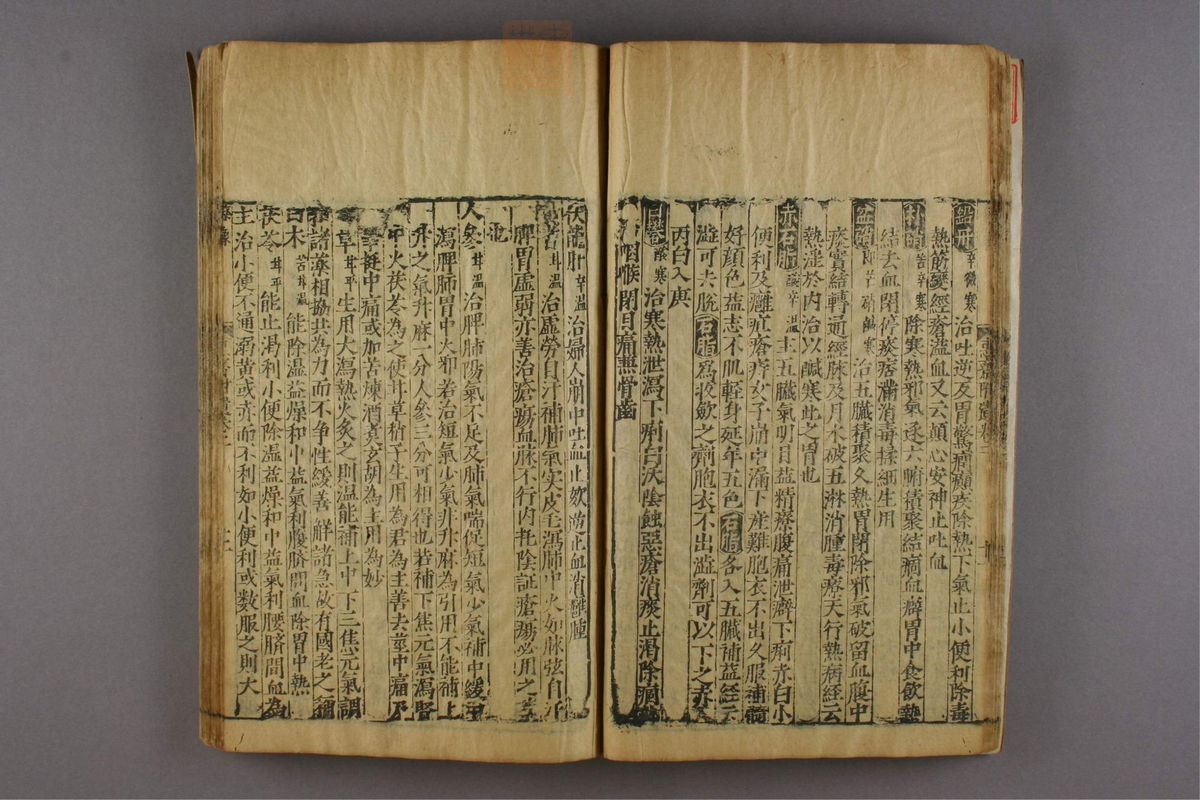 鉛丹辛微寒治吐逆反胃驚癇癲疾除熱下氣止小便利除毒
熱筋攣經瘡溢血又云顛心安神止吐血
朴硝苦辛寒除寒熱邪氣逐六腑積聚結痼血癖胃中食飲熱
結去血閉停痰痞滿消毒揉細生用
盆硝即芒硝鹹寒治五臟積聚久熱胃閉除邪氣破留血腹中
痰實結轉通經脉及月水破五淋消腫毒療天行熱病經云
熱淫於內治以鹹寒此之胃也
赤石脂酸辛溫主五臟氣明目益精療腹痛泄癖下痢赤白小
便利及癰疽瘡痔女子崩中漏下產難胞衣不出久服補髓
好顏色益志不肌輕身延年五色石脂各入五臟補益經云
澁可去脫石脂為收歛之劑胞衣不出澁劑可以下之赤入
丙白入庚
白礬酸寒治寒熱泄瀉下痢白沃陰蝕惡瘡消痰止渴除痼
咽喉閉目痛堅骨齒
伏龍肝辛溫治婦人崩中吐血止欬逆止血消癰腫
溫治虛勞自汗補肺氣實皮毛瀉肺中火如脉弦自汗
脾胃虛弱亦善治瘡瘍血脉不行內托陰証瘡瘍必用之
也
人參甘溫治脾肺陽氣不足及肺氣喘促短氣少氣補中緩中
瀉脾肺胃中火邪若治短氣少氣非升麻為引用不能補上
升之氣升麻一分人參三分可相得也若補下焦元氣瀉腎
中火茯苓為之使甘草梢子生用為君為主善去莖中痛乃
莖中痛或加苦煉酒煑玄胡為主用為妙
草甘平生用大瀉熱火炙之則溫能補上中下三焦元氣調
諸藥相協共為力而不争性緩善解諸急故有國老之稱
白木苦甘溫能除濕益燥和中益氣利腰臍間血除胃中熱
茯苓甘平能止渴利小便除濕益燥和中益氣利腰臍間血為
主治小便不通溺黄或赤而不利如小便利或数服之則大